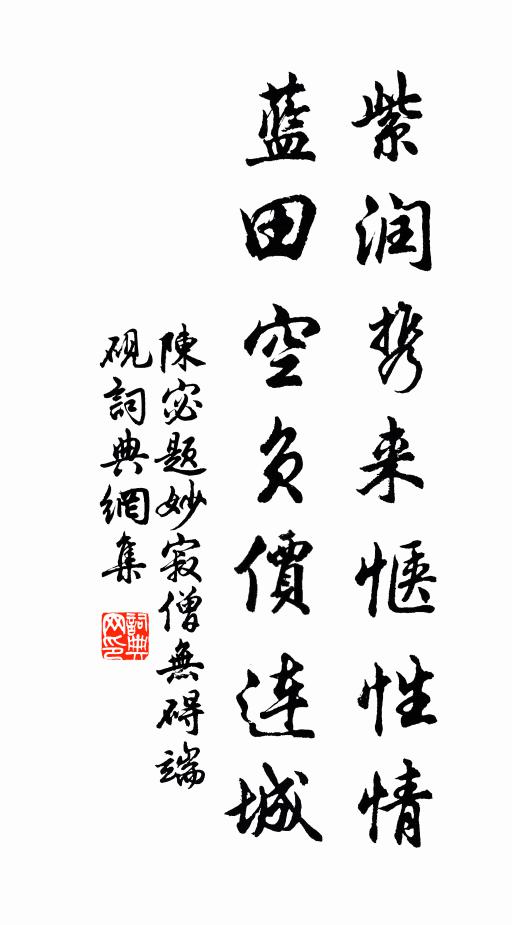 紫润携来愜性情
藍田空負價連城
陳宓題妙寂僧無碍端
硯詞典網集
詞典网印